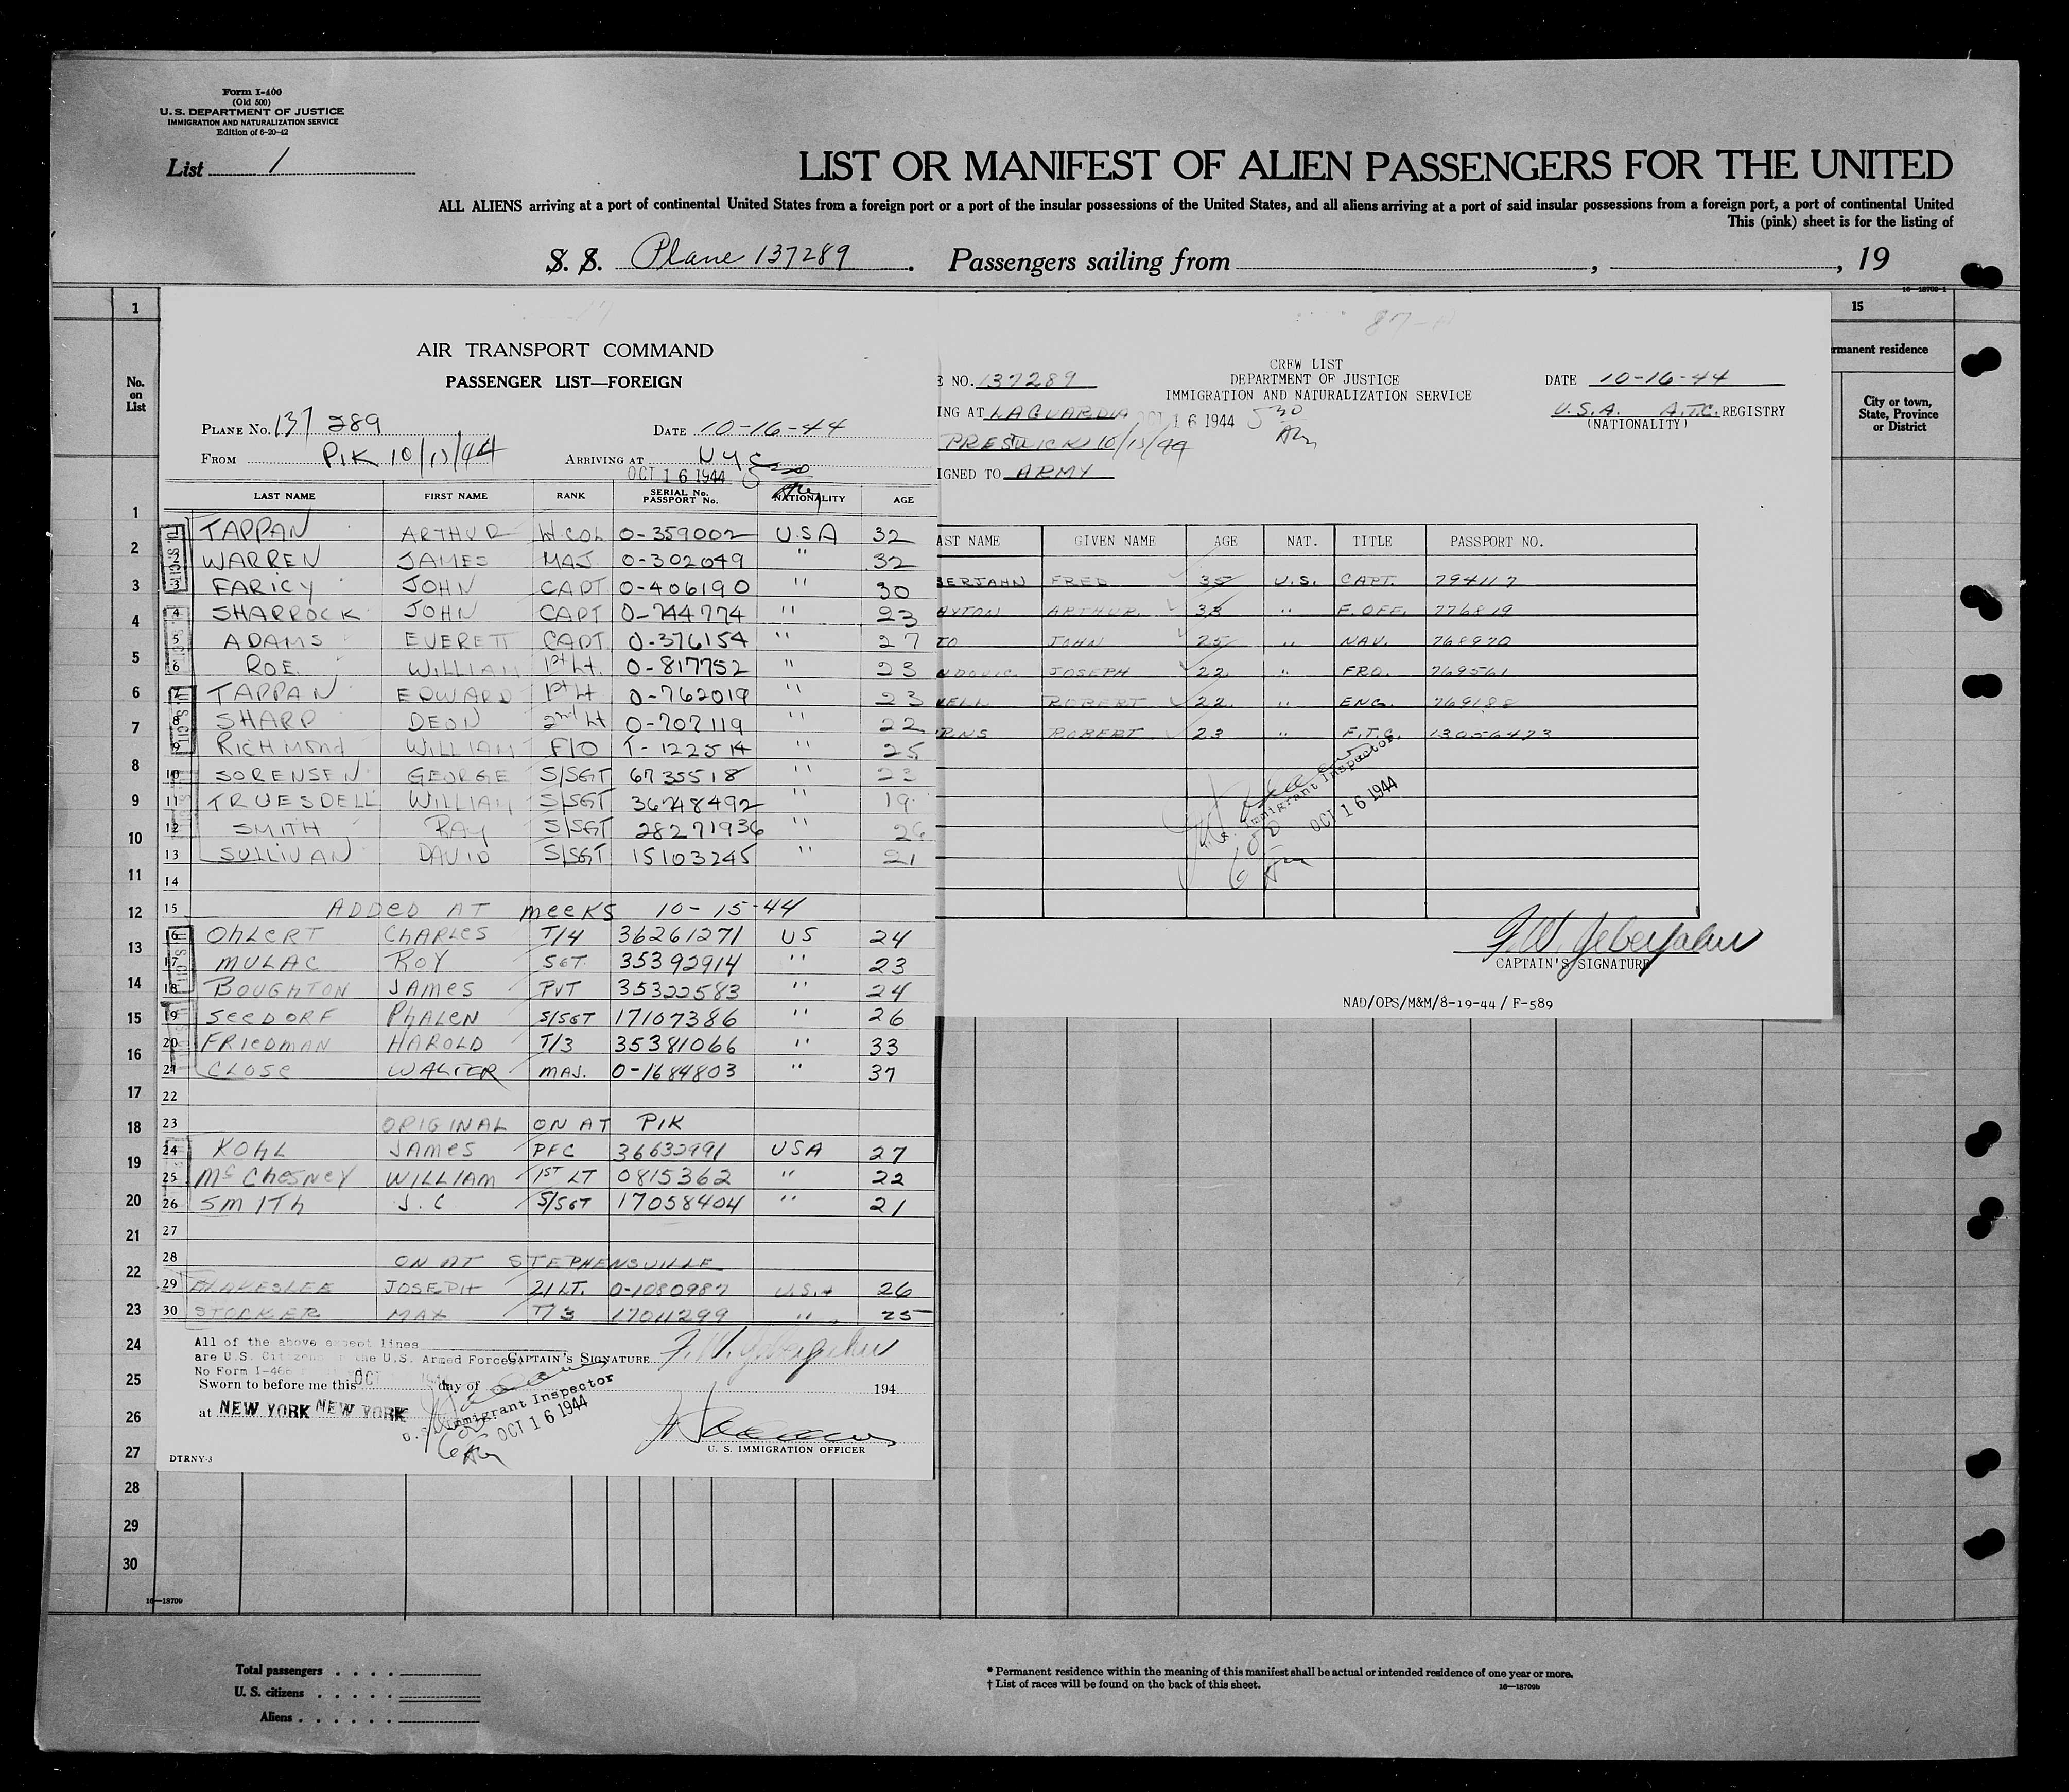 Form I-400
(Old 500)
U. S. DEPARTMENT OF JUSTICE
IMMIGRATION AND NATURALIZATION SERVICE
Edition of 6-20-42
List 1
LIST OR MANIFEST OF ALIEN PASSENGERS FOR THE UNITED
ALL ALIENS arriving at a port of continental United States from a foreign port or a port of the insular possessions of the United States, and all aliens arriving at a port of said insular possessions from a foreign port, a port of continental United
This (pink) sheet is for the listing of
S. S. Plane 137289. Passengers sailing from , , 19
16—18709-1
1
No. on List
1
2
3
4
5
6
7
8
9
10
11
12
13
14
15
16
17
18
19
20
21
22
23
24
25
26
27
28
29
30
16—18709
AIR TRANSPORT COMMAND
PASSENGER LIST—FOREIGN
PLANE No. 137 289 DATE 10-16-44
FROM PIK 10/15/44 ARRIVING AT NYC
OCT 16 1944
LAST NAME FIRST NAME RANK SERIAL No. PASSPORT No. NATIONALITY AGE
TAPPAN ARTHUR Lt COL O-359002 U.S.A 32
2 WARREN JAMES MAJ O-302049 " 32
3 FARICY JOHN CAPT O-406190 " 30
4 SHARROCK JOHN CAPT O-744774 " 23
5 ADAMS EVERETT CAPT O-376154 " 27
6 ROE WILLIAM 1st Lt. O-817752 " 23
7 TAPPAN EDWARD 1st Lt O-762019 " 23
8 SHARP DEON 2nd Lt O-707119 " 22
9 RICHMOND WILLIAM F/O T-122514 " 25
10 SORENSEN GEORGE S/SGT 6735518 " 23
11 TRUESDELL WILLIAM S/SGT 36748492 " 19
12 SMITH RAY S/SGT 28271936 " 26
13 SULLIVAN DAVID S/SGT 15103245 " 21
14
15 ADDED AT MEEKS 10-15-44
16 OHLERT CHARLES T/4 36261271 US 24
17 MULAC ROY SGT 35392914 " 23
18 BOUGHTON JAMES PVT 35322583 " 24
19 SEEDORF PHALEN S/SGT 17107386 " 26
20 FRIEDMAN HAROLD T/3 35381066 " 33
21 CLOSE WALTER MAJ. O-1684803 " 37
22
23 ORIGINAL ON AT PIK
24 KOHL JAMES PFC 36632991 USA 27
25 McCHESNEY WILLIAM 1ST LT 0815362 " 22
26 SMITH J. C S/SGT 17058404 " 21
27
28 ON AT STEPHENSVILLE
29 BLAKESLEE JOSEPH 2/LT. O-1080987 U.S.A 26
30 STOCKER MAX T/3 17011299 " 25
All of the above except lines
are U.S. Citizens in the U.S. Armed Forces.
No Form I-466
CAPTAIN'S SIGNATURE
Sworn to before me this OCT day of 194
at NEW YORK NEW YORK
Immigrant Inspector
OCT 16 1944
U. S. IMMIGRATION OFFICER
DTRNY-3
87-
CREW LIST
DEPARTMENT OF JUSTICE
IMMIGRATION AND NATURALIZATION SERVICE
NO. 137289
DATE 10-16-44
ING AT LAGUARDIA OCT 16 1944 530 Am
U.S.A. A.T.C. REGISTRY
(NATIONALITY)
PRESTWICK 10/15/44
IGNED TO ARMY
AST NAME GIVEN NAME AGE NAT. TITLE PASSPORT NO.
BERJAHN FRED 35 U.S. CAPT. 794117
AYTON ARTHUR 33 " F. OFF. 776819
TO JOHN 25 " NAV. 768970
NDOVIC JOSEPH 22 " FRO. 769561
WELL ROBERT 22 " ENG. 769188
RNS ROBERT 23 " F.T.C. 13056473
Immigrant Inspector
OCT 16 1944
CAPTAIN'S SIGNATURE
NAD/OPS/M&M/8-19-44 / F-589
15
rmanent residence
City or town, State, Province or District
Total passengers
U. S. citizens
Aliens
* Permanent residence within the meaning of this manifest shall be actual or intended residence of one year or more.
† List of races will be found on the back of this sheet.
16—18709b